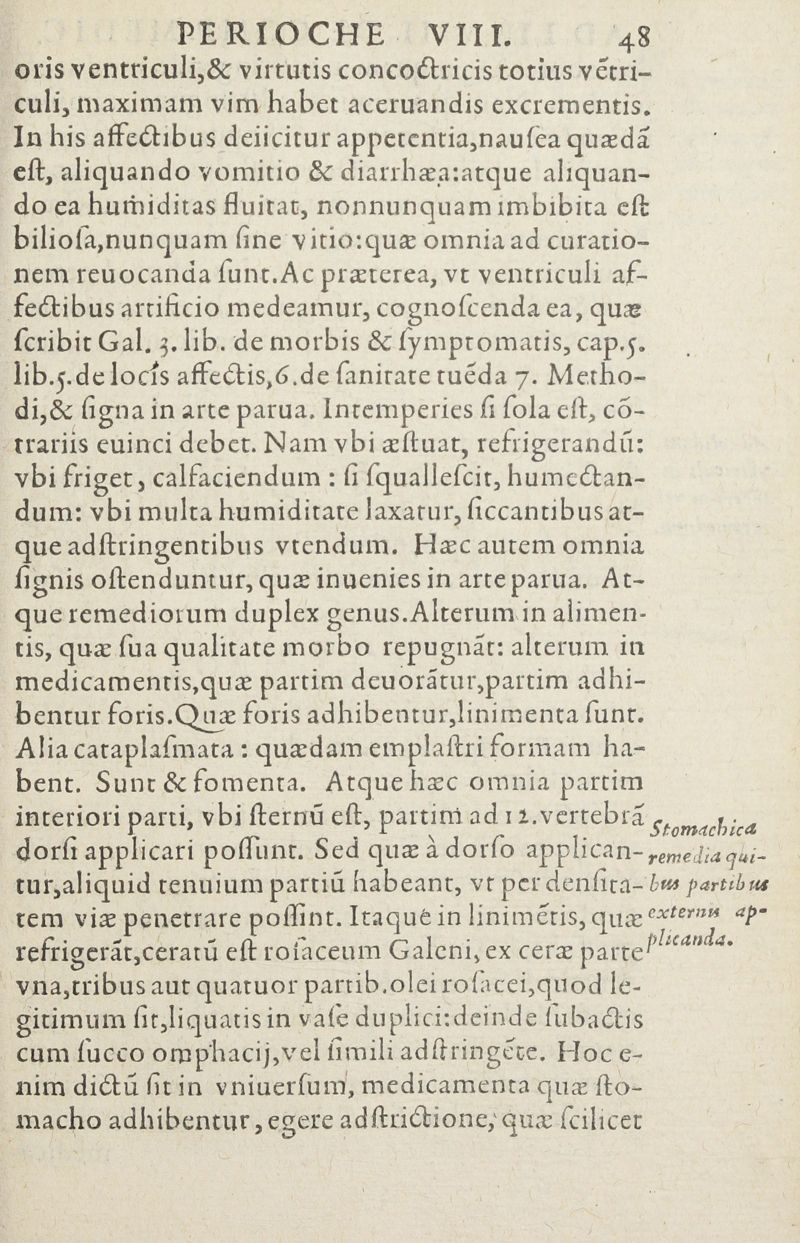 PERIOCHE VIII. 48
oris ventriculi,& virtutis concoctricis totius vẽtri-
culi, maximam vim habet aceruandis excrementis.
In his affectibus deiicitur appetentia,nauſea quædã
eſt, aliquando vomitio & diarrhæa:atque aliquan-
do ea humiditas fluitat, nonnunquam imbibita eſt
bilioſa,nunquam ſine vitio:quæ omnia ad curatio-
nem reuocanda ſunt.Ac præterea, vt ventriculi af-
fectibus artificio medeamur, cognoſcenda ea, quæ
ſcribit Gal. 3. lib. de morbis & ſymptomatis, cap.5.
lib.5.de locis affectis,6.de ſanitate tuẽda 7. Metho-
di,& ſigna in arte parua. Intemperies ſi ſola eſt, cõ-
trariis euinci debet. Nam vbi æſtuat, refrigerandũ:
vbi friget, calfaciendum : ſi ſquallefcit, humectan-
dum: vbi multa humiditate laxatur, ſiccantibus at-
que adſtringentibus vtendum. Hæc autem omnia
ſignis oſtenduntur, quæ inuenies in arte parua. At-
que remediorum duplex genus.Alterum in alimen-
tis, quæ ſua qualitate morbo repugnãt: alterum in
medicamentis,quæ partim deuorãtur,partim adhi-
bentur foris.Quæ foris adhibentur,linimenta ſunt.
Alia cataplaſmata : quædam emplaſtri formam ha-
bent. Sunt & fomenta. Atque hæc omnia partim
interiori parti, vbi ſternũ eſt, partim ad 12.vertebrã
dorſi applicari poſſunt. Sed quæ à dorſo applican-
tur,aliquid tenuium partiũ habeant, vt per denſita-
tem viæ penetrare poſſint. Itaque in linimẽtis, quæ
refrigerãt,ceratũ eſt roſaceum Galeni, ex ceræ parte
vna,tribus aut quatuor partib.olei roſacei,quod le-
gitimum ſit,liquatis in vaſe duplici:deinde ſubactis
cum ſucco omphacij,vel ſimili adſtringẽte. Hoc e-
nim dictũ ſit in vniuerſum, medicamenta quæ ſto-
macho adhibentur, egere adſtrictione, quæ ſcilicet
Stomachica
remedia qui-
bus partibus
externis ap-
plicanda.